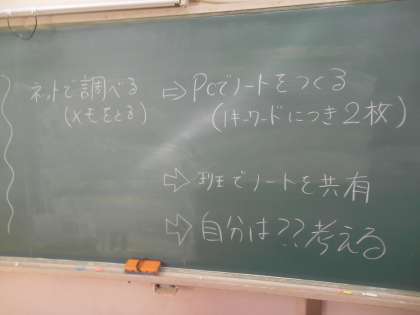 ネットで調べる ⇨ PCでノートをつくる
(メモをとる) (1キーワードにつき2枚)
⇨ 班でノートを共有
⇨ 自分は??考える